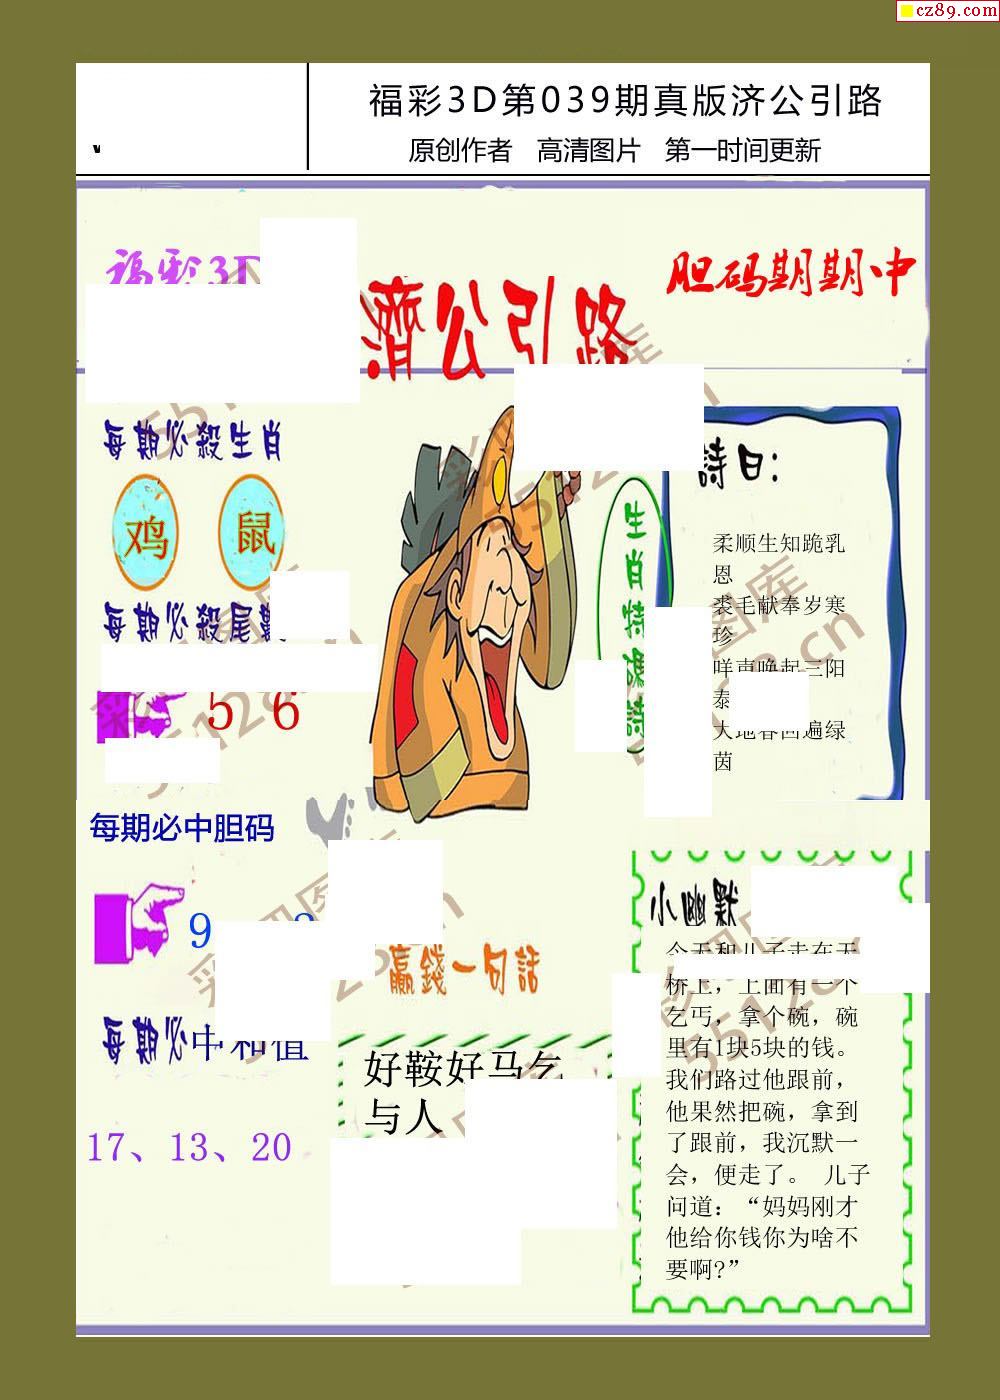 cz89.com
福彩3D第039期真版济公引路
原创作者 高清图片 第一时间更新
福彩3D
濟公引路
胆码期期中
每期必殺生肖
鸡 鼠
每期必殺尾數
5 6
每期必中胆码
9
每期必中和值
17、13、20
生肖特碼詩
詩曰:
柔顺生知跪乳
恩
裘毛献奉岁寒
珍
咩声唤起三阳
泰
大地春回遍绿
茵
贏錢一句話
好鞍好马乞
与人
小幽默
今天和儿子走在天
桥上，上面有一个
乞丐，拿个碗，碗
里有1块5块的钱。
我们路过他跟前，
他果然把碗，拿到
了跟前，我沉默一
会，便走了。 儿子
问道：“妈妈刚才
他给你钱你为啥不
要啊?”